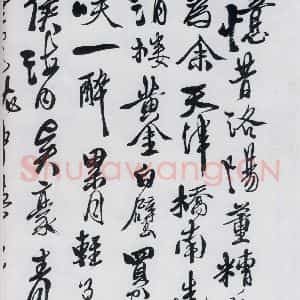 憶昔洛陽董糟
為余天津橋南造
酒樓黄金白璧買
笑一醉累月輕王
侯海内賢豪青
Shufawang.CN